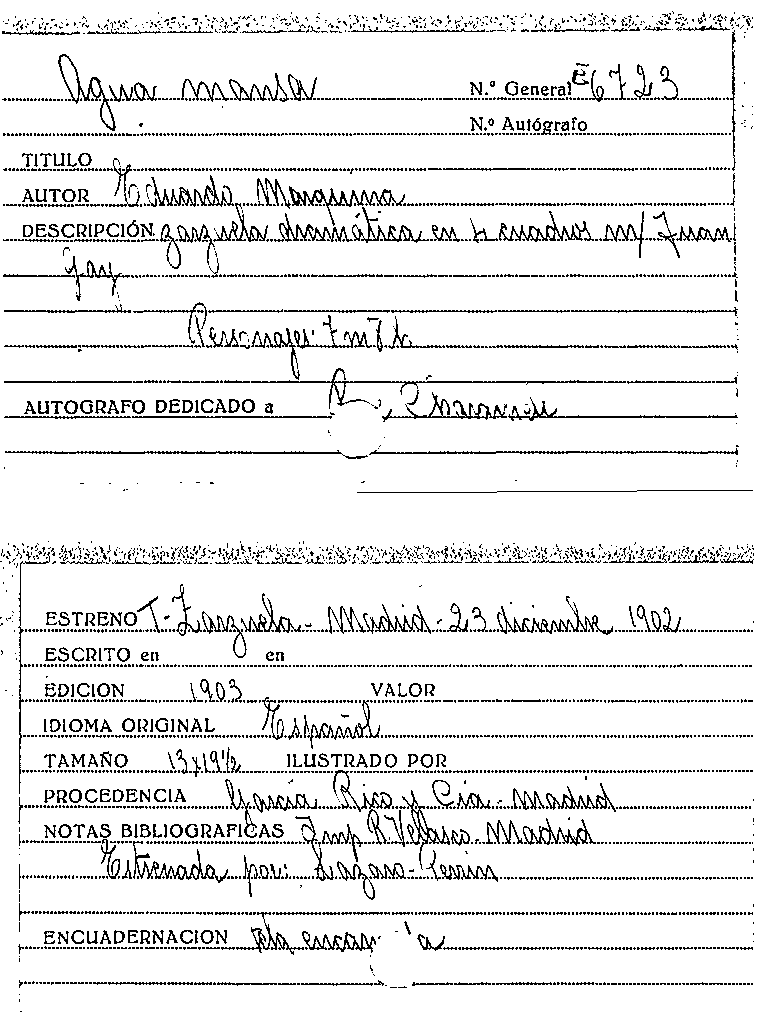 Agua mansa
N.º General E 6723
N.º Autógrafo
TITULO
AUTOR Eduardo Marquina
DESCRIPCIÓN zarzuela dramática en 4 cuadros m/ Juan
Gay
Personajes: 7 m 7 h
AUTOGRAFO DEDICADO a
ESTRENO T. Zarzuela - Madrid - 23 diciembre 1902
ESCRITO en en
EDICION 1903 VALOR
IDIOMA ORIGINAL Español
TAMAÑO 13x19½ ILUSTRADO POR
PROCEDENCIA García Rico y Cía - Madrid
NOTAS BIBLIOGRAFICAS Imp R. Velasco - Madrid
Estrenada por: Lázaro - Perrin
ENCUADERNACION tela